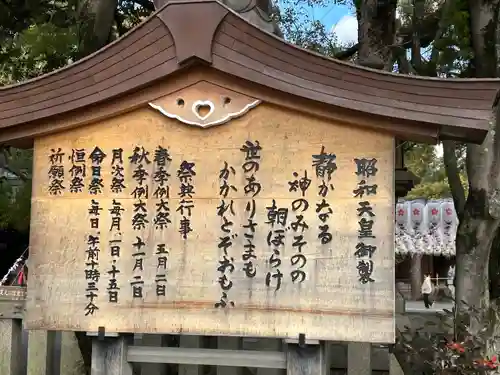 昭和天皇御製
静かなる
神のみその の
朝ぼらけ
世のありさまも
かかれとぞおもふ
祭典・興行事
春季例大祭 五月二日
秋季例大祭 十一月二日
月次祭 毎月一日十五日
命日祭 毎日 午前十時三十分
恒例祭
祈願祭